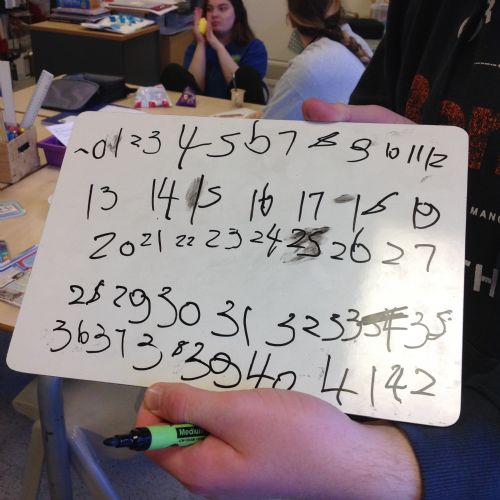 ~0 1 2 3 4 5 6 7 8 9 10 11 12
13 14 15 16 17 18 19
20 21 22 23 24 25 26 27
28 29 30 31 32 33 34 35
36 37 38 39 40 41 42
Medium
MANC
TH